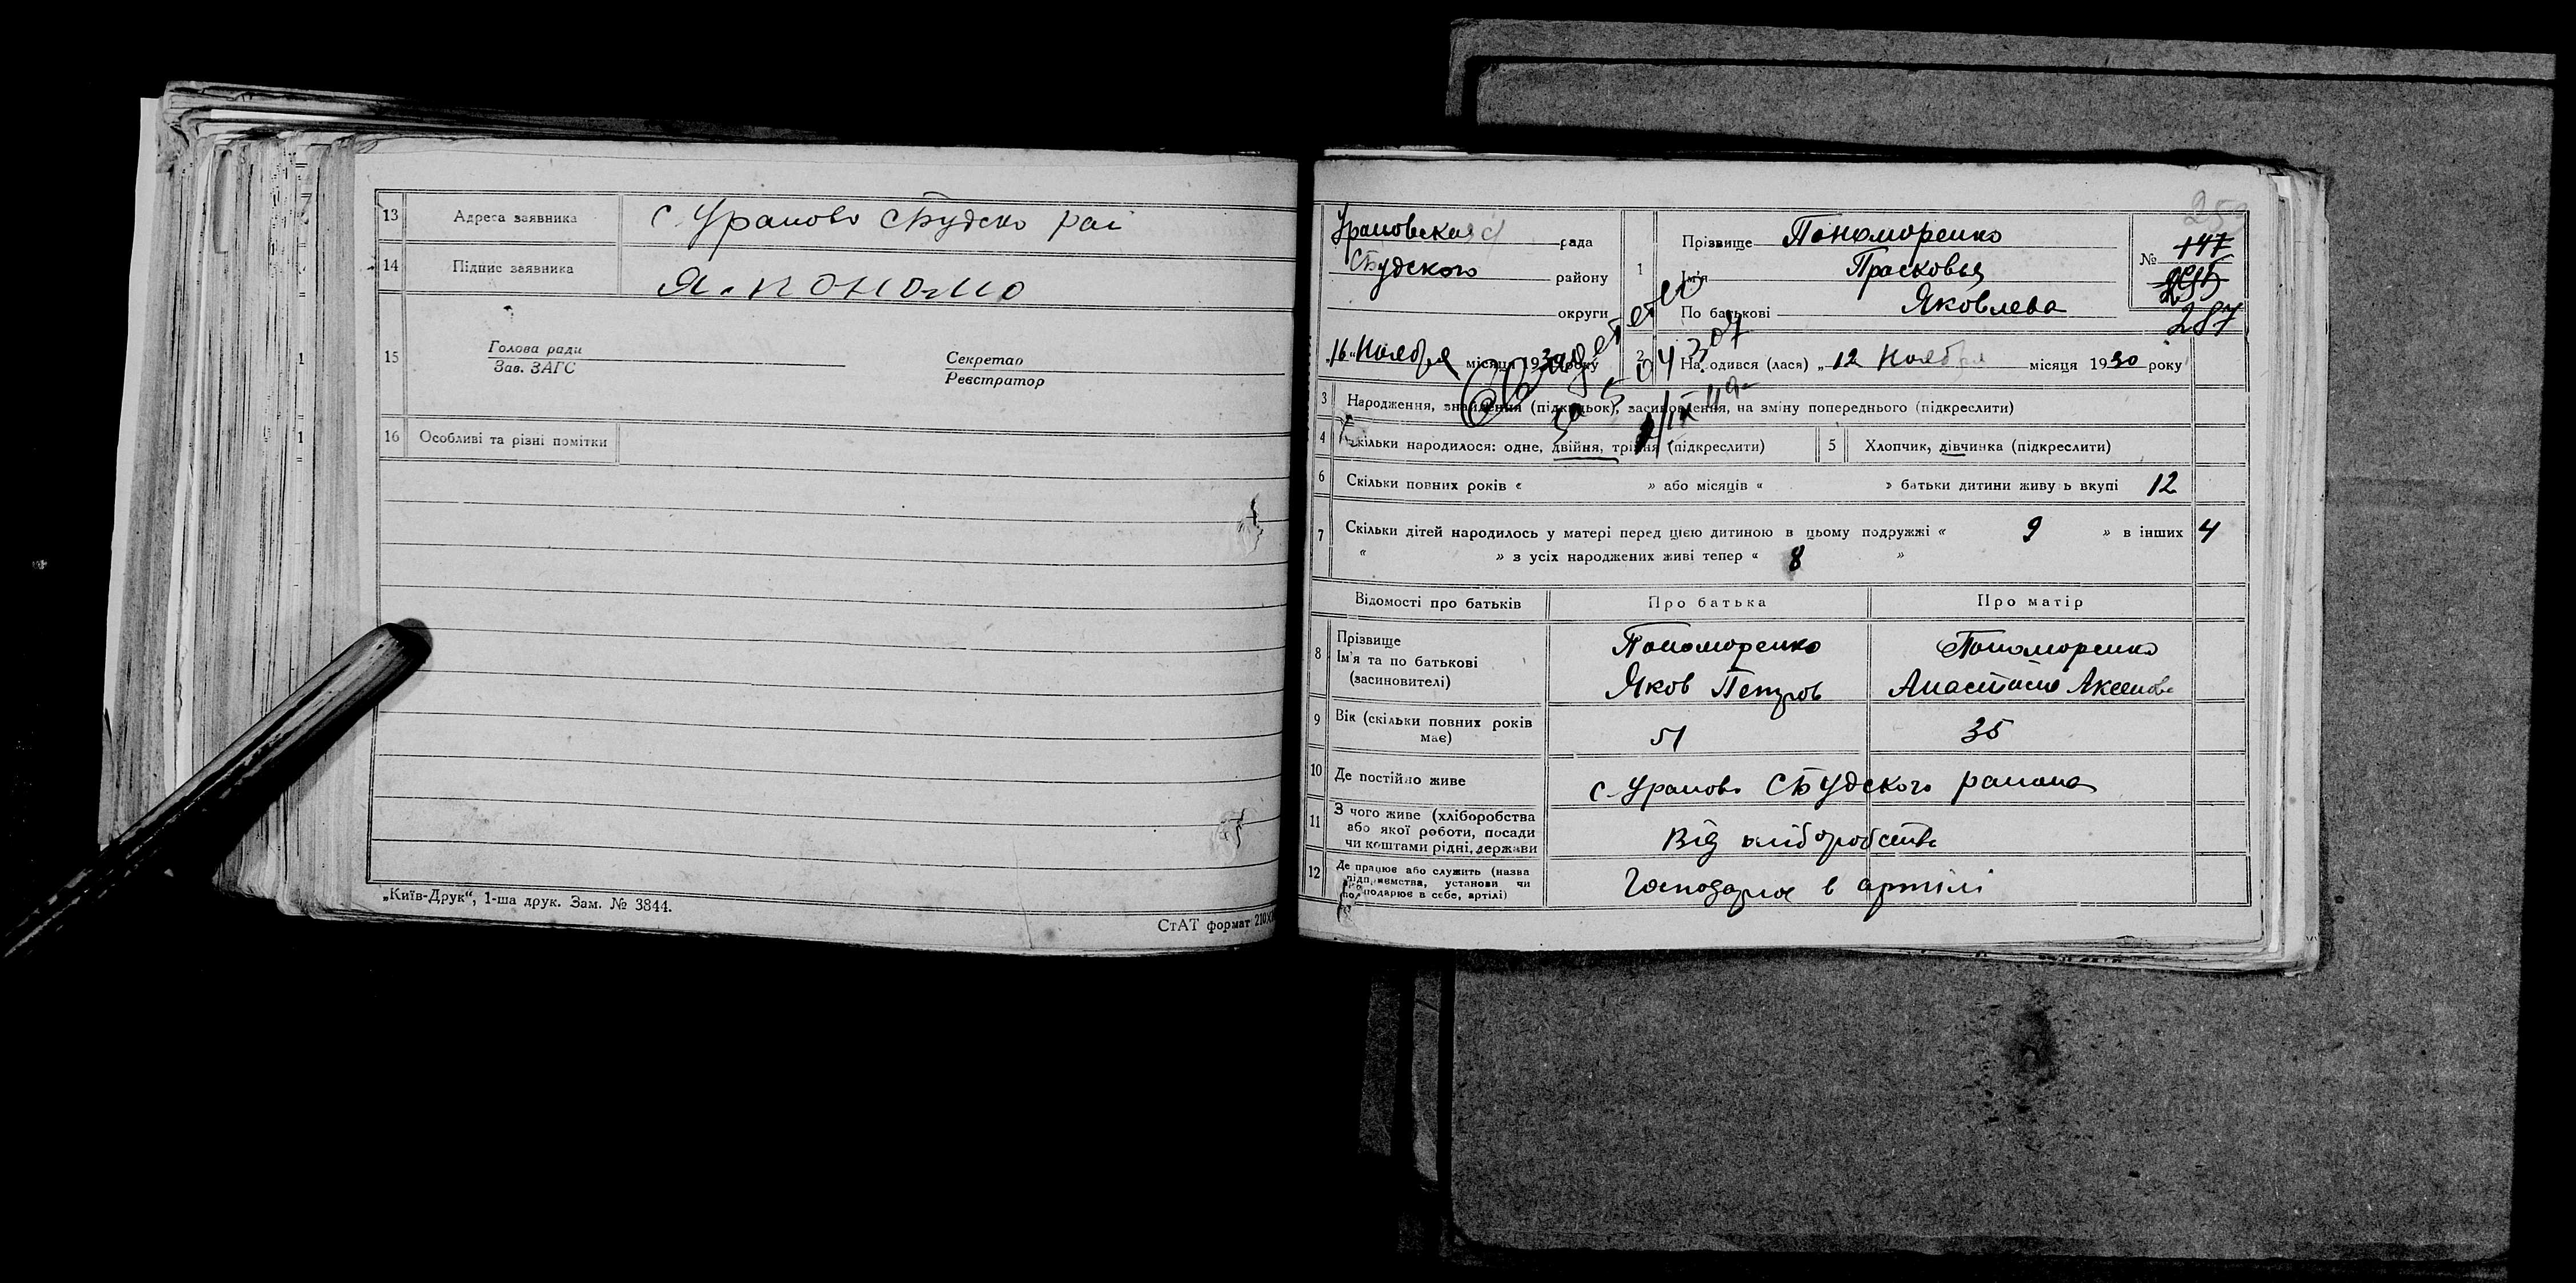 13 Адреса заявника с Ураново СБудско рai
14 Підпис заявника Я. Пономо
15 Голова ради
Зав. ЗАГС
Секретар
Реєстратор
16 Особливі та різні помітки
„Київ-Друк“, 1-ша друк. Зам. № 3844.
СтАТ формат 210Х
Урановская рада
СБудского району
округи
„16“ Ноября місяця 1930 року
1 Прізвище Пономоренко
Ім'я Прасковья
По батькові Яковлева
253
№ 147
287
2 Народився (лася) „12 Ноября місяця 1930 року
3 Народження, знайдення (підкидьок), засиновлення, на зміну попереднього (підкреслити)
4 Скільки народилося: одне, двійня, трійня (підкреслити)
5 Хлопчик, дівчинка (підкреслити)
6 Скільки повних років « » або місяців « » батьки дитини живуть вкупі 12
7 Скільки дітей народилось у матері перед цією дитиною в цьому подружжі « 9 » в інших 4
« » з усіх народжених живі тепер « 8 »
Відомості про батьків Про батька Про матір
8 Прізвище Пономоренко Пономоренко
Ім'я та по батькові
(засиновителі) Яков Петров Анастасия Аксенова
9 Вік (скільки повних років
має) 51 35
10 Де постійно живе сУраново СБудского района
11 З чого живе (хліборобства
або якої роботи, посади
чи коштами рідні, держави Від хліборобства
12 Де працює або служить (назва
підприємства, установи чи
господарює в себе, артілі) Господарює в артілі